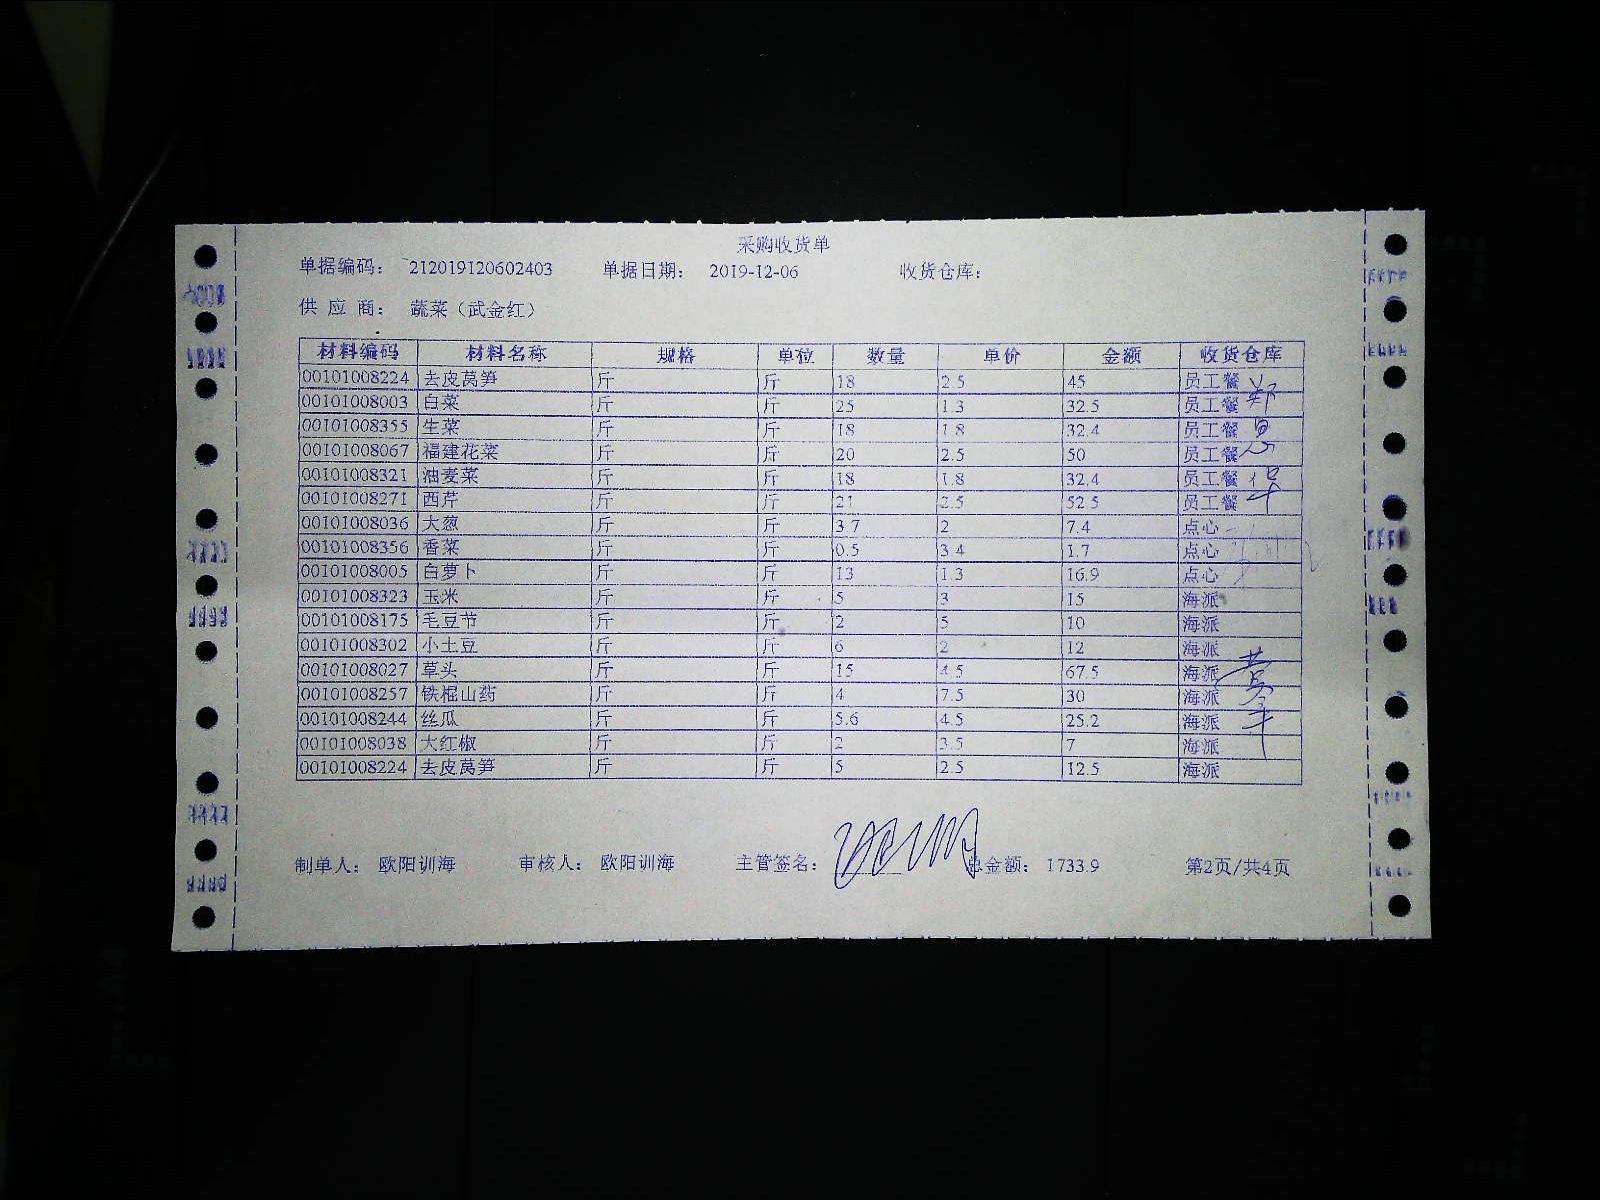 采购收货单
单据编码: 212019120602403 单据日期: 2019-12-06 收货仓库:
供 应 商: 蔬菜（武金红）
材料编码 材料名称 规格 单位 数量 单价 金额 收货仓库
00101008224 去皮莴笋 斤 斤 18 2.5 45 员工餐
00101008003 白菜 斤 斤 25 1.3 32.5 员工餐
00101008355 生菜 斤 斤 18 1.8 32.4 员工餐
00101008067 福建花菜 斤 斤 20 2.5 50 员工餐
00101008321 油麦菜 斤 斤 18 1.8 32.4 员工餐
00101008271 西芹 斤 斤 21 2.5 52.5 员工餐
00101008036 大葱 斤 斤 3.7 2 7.4 点心
00101008356 香菜 斤 斤 0.5 3.4 1.7 点心
00101008005 白萝卜 斤 斤 13 1.3 16.9 点心
00101008323 玉米 斤 斤 5 3 15 海派
00101008175 毛豆节 斤 斤 2 5 10 海派
00101008302 小土豆 斤 斤 6 2 12 海派
00101008027 草头 斤 斤 15 4.5 67.5 海派
00101008257 铁棍山药 斤 斤 4 7.5 30 海派
00101008244 丝瓜 斤 斤 5.6 4.5 25.2 海派
00101008038 大红椒 斤 斤 2 3.5 7 海派
00101008224 去皮莴笋 斤 斤 5 2.5 12.5 海派
制单人: 欧阳训海 审核人: 欧阳训海 主管签名: 总金额: 1733.9 第2页/共4页